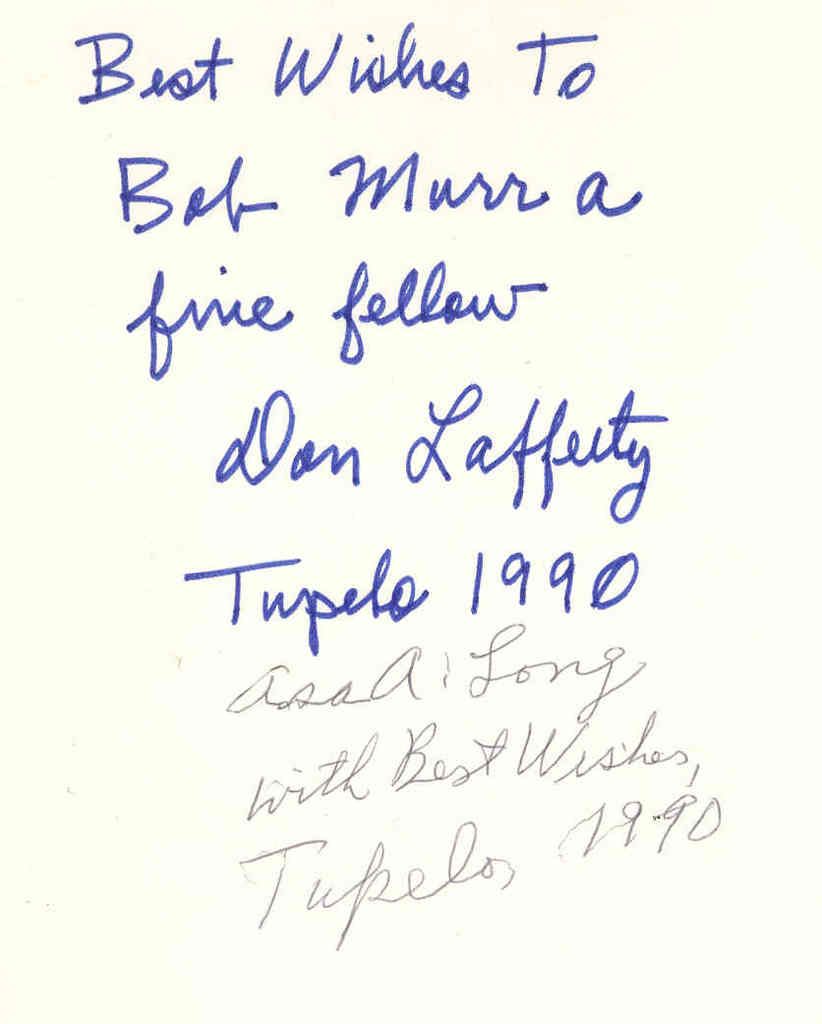 Best Wishes To
Bob Murr a
fine fellow
Don Lafferty
Tupelo 1990
Asa A. Long
with Best Wishes,
Tupelo, 1990